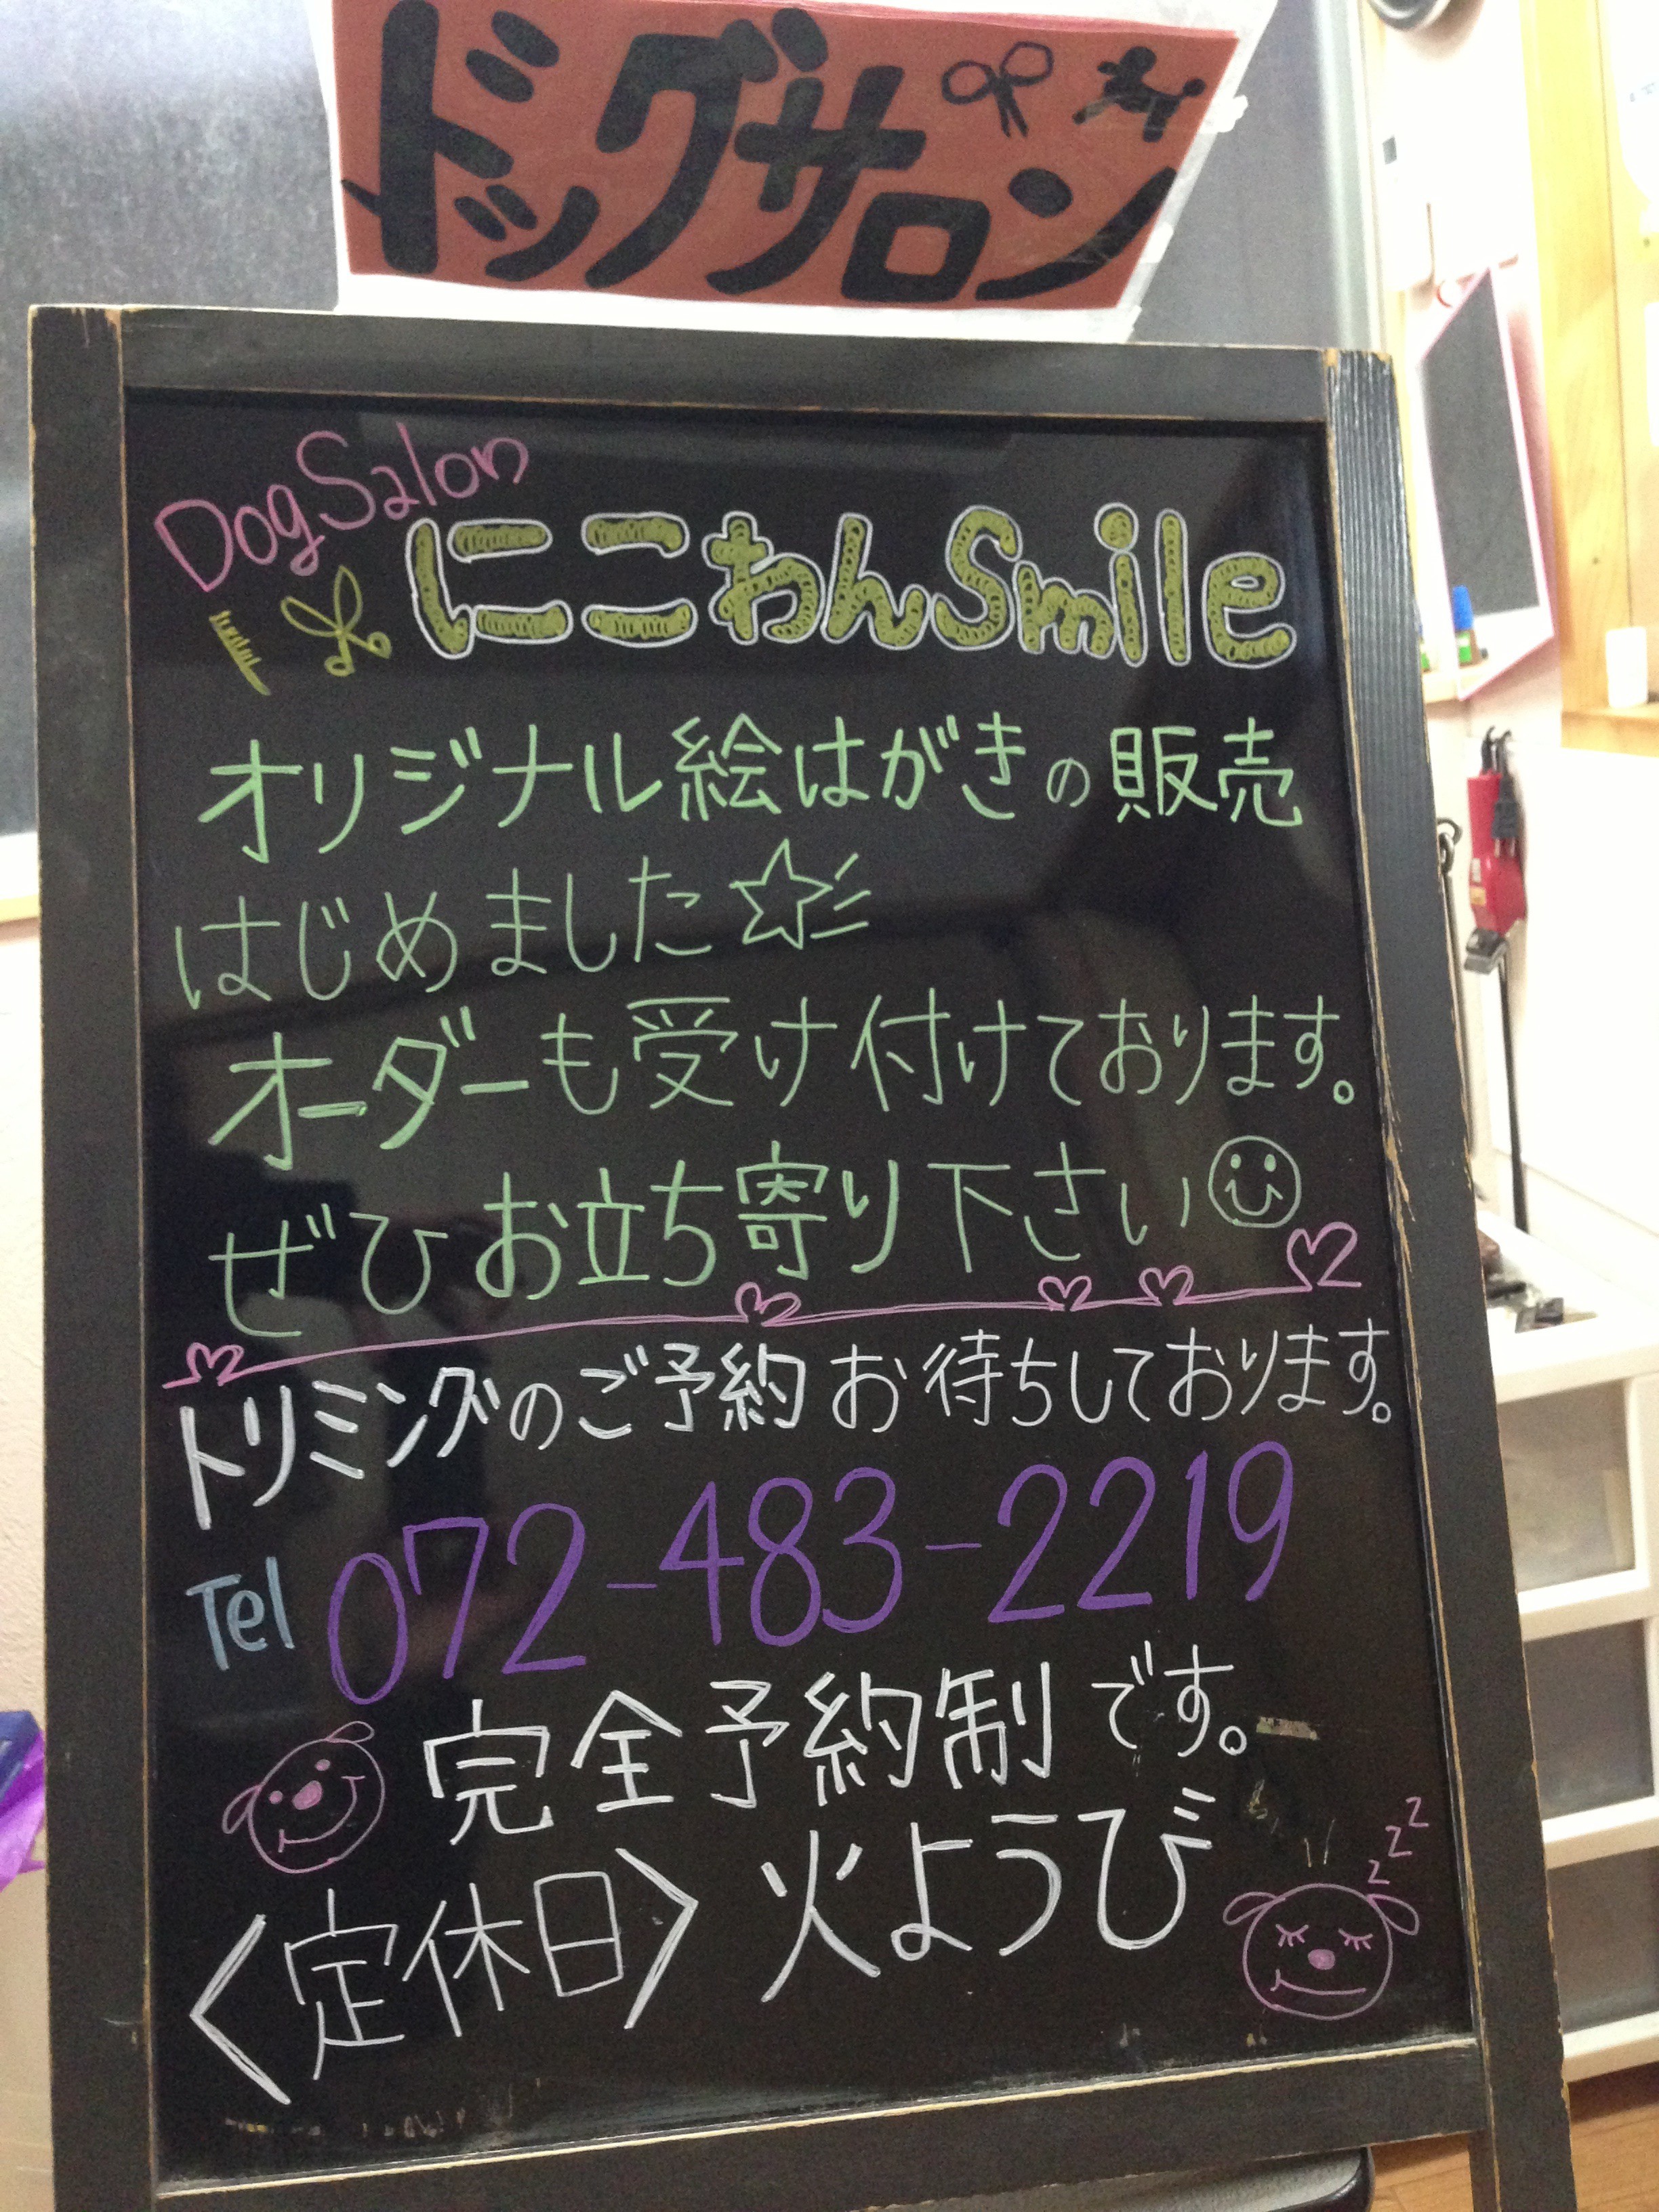 ドッグサロン
Dog Salon
にこわんSmile
オリジナル絵はがきの販売
はじめました☆
オーダーも受け付けております。
ぜひお立ち寄り下さい
トリミングのご予約お待ちしております。
Tel 072-483-2219
完全予約制です。
〈定休日〉火ようび
zzz